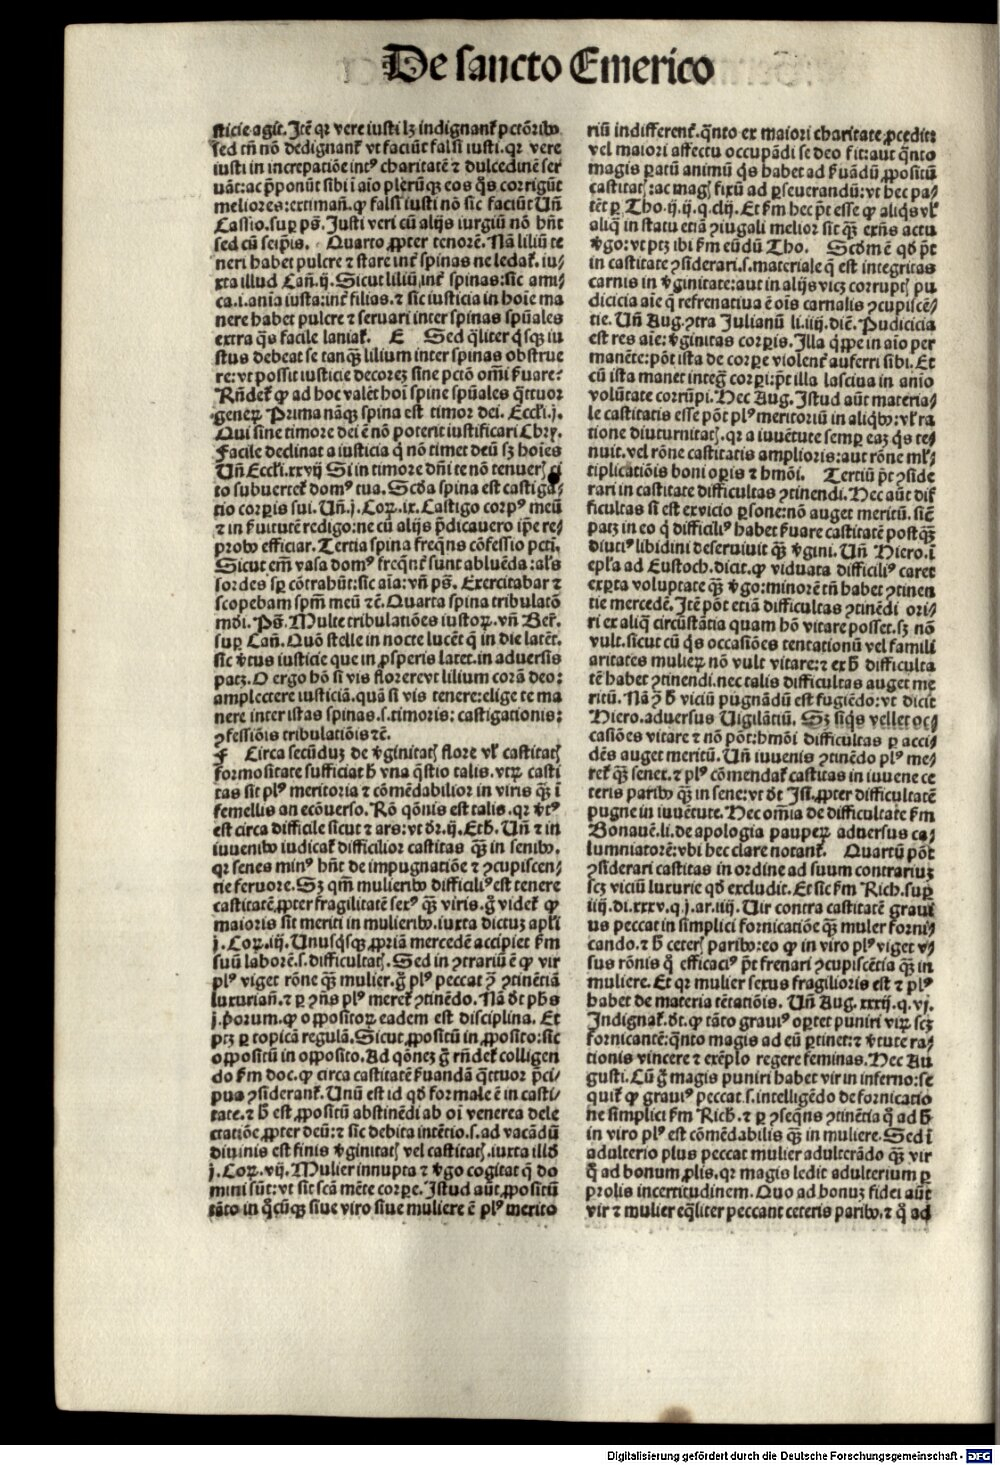 De sancto Emerico
sticie agit. Itē qꝛ vere iusti lꝫ indignant᷑ pctōribꝰ
sed tn̄ nō dedignant᷑ vt faciūt falsi iusti. qꝛ vere
iusti in increpatiōe intꝰ charitatē ⁊ dulcedinē ser
uāt: ac p̄ponūt sibi ī aīo plerūqꝫ eos q̄s corrigūt
meliores: extiman̄. ꝙ falsi iusti nō sic faciūt Un̄
Cassio. suꝑ ps̄. Justi veri cū alijs iurgiū nō hn̄t
sed cū seip̄is. Quarto ꝓpter tenorē. Nā liliū te
neri habet pulcre ⁊ stare int̄ spinas ne ledat᷑. iu⸗
xta illud Can̄. ij. Sicut liliū int̄ spinas: sic ami⸗
ca. i. anīa iusta: int̄ filias. ⁊ sic iusticia in hoīe ma
nere habet pulcre ⁊ seruari inter spinas spūales
extra q̄s facile laniat᷑. E Sed qͣliter qͥsqꝫ iu
stus debeat se tanqꝫ lilium inter spinas obstrue
re: vt possit iusticie decorez sine pctō om̄i ẜuare?
Rn̄det᷑ ꝙ ad hoc valēt hoī spine spūales qͣttuor
geneꝝ Prima nāqꝫ spina est timor dei. Eccľi. j.
Qui sine timore dei ē nō poterit iustificari Chrꝭ.
Facile declinat a iusticia qͥ nō timet deū sꝫ hoīes
Un̄ Eccľi. xxvij Si in timore dn̄i te nō tenuerꝭ ci
to subuertet᷑ domꝰ tua. Scďa spina est castiga⸗
tio corꝑis sui. Un̄. j. Coꝝ. ix. Castigo corpꝰ meū
⁊ in ẜuitutē redigo: ne cū alijs p̄dicauero ip̄e re⸗
probꝰ efficiar. Tertia spina freqn̄s cōfessio pcti.
Sicut em̄ vasa domꝰ freqn̄t᷑ sunt abluēda: aľs
sordes sꝑ cōtrahūt: sic aīa: vn̄ ps̄. Exercitabar ⁊
scopebam spm̄ meū ⁊c̄. Quarta spina tribulatō
mōi. Ps̄. Multe tribulatiōes iustoꝝ. vn̄ Ber̄.
suꝑ Can̄. Quō stelle in nocte lucēt q̄ in die latēt.
sic ꝟtus iusticie que in ꝓsperis latet. in aduersis
patꝫ. O ergo hō si vis florere vt lilium corā deo:
amplectere iusticiā. quā si vis tenere: elige te ma
nere inter istas spinas. s. timoris: castigationis:
ꝯfessiōis tribulatiōis ⁊c̄.
F Circa secūduꝫ de ꝟginitatꝭ flore vľ castitatꝭ
formositate sufficiat ħ vna q̄stio talis. vtꝝ casti
tas sit plꝰ meritoria ⁊ cōmēdabilior in viris qꝫ̄ ī
femellis an ecōuerso. Rō qōnis est talis. qꝛ ꝟtꝰ
est circa difficile sicut ⁊ ars: vt dr̄. ij. Eth̄. Un̄ ⁊ in
iuuenibꝰ iudicat᷑ difficilior castitas qꝫ̄ in senibꝰ.
qꝛ senes minꝰ hn̄t de impugnatiōe ⁊ ꝯcupiscen⸗
tie feruore. Sꝫ qm̄ mulieribꝰ difficiliꝰ est tenere
castitatē. ꝓpter fragilitatē sexꝰ qꝫ̄ viris. g̊ videt᷑ ꝙ
maioris sit meriti in mulieribꝰ. iuxta dictuꝫ apľi
j. Coꝝ. iij. Unusqͥsqꝫ ꝓpriā mercedē accipiet ẜm
suū laborē. s. difficultatꝭ. Sed in ꝯtrariū ē ꝙ vir
plꝰ viget rōne qꝫ̄ mulier. g̊ plꝰ peccat ꝯ̄ ꝯtinētiā
luxurian̄. ⁊ ꝑ ꝯn̄s plꝰ meret᷑ ꝯtinēdo. Nā d̄t phs̄
j. ꝑorum. ꝙ oppositoꝝ eadem est disciplina. Et
ptꝫ ꝑ topicā regulā. Sicut ꝓpositū in ꝓposito: sic
oppositū in opposito. Ad qōneꝫ g̊ rn̄det᷑ colligen
do ẜm doc. ꝙ circa castitatē ẜuandā qͣttuor p̄ci⸗
pua ꝯsiderant᷑. Unū est id qď formale ē in casti⸗
tate. ⁊ ħ est ꝓpositū abstinēdi ab oī venerea dele
ctatiōe ꝓpter deū: ⁊ sic debita intētio. s. ad vacādū
diuinis est finis ꝟginitatꝭ vel castitatꝭ. iuxta illď
j. Coꝝ. vij. Mulier innupta ⁊ ꝟgo cogitat q̄ do
mini sūt: vt sit scā mēte corꝑe. Istud aūt ꝓpositū
tāto in qͦcūqꝫ siue viro siue muliere ē plꝰ merito
riū indifferent᷑. qͣnto ex maiori charitate ꝓcedit:
vel maiori affectu occupādi se deo fit: aut qͣnto
magis ꝑatū animū qͥs habet ad ẜuādū ꝓpositū
castitatꝭ: ac magꝭ fixū ad ꝑseuerandū: vt hec pa⸗
tēt ꝑ Tho. ij. ij. q. clij. Et ẜm hec p̄t esse ꝙ aliqͥs vľ
aliqͣ in statu etiā ꝯiugali melior sit qꝫ̄ exn̄s actu
ꝟgo: vt ptꝫ ibi ẜm eūdū Tho. Scďm ē qď p̄t
in castitate ꝯsiderari. s. materiale qď est integritas
carnis in ꝟginitate: aut in alijs vicꝫ corruptꝭ pu
dicicia aīe q̄ refrenatiua ē oīs carnalis ꝯcupiscē⸗
tie. Un̄ Aug. ꝯtra Julianū li. iiij. dic̄. Pudicicia
est res aīe: ꝟginitas corꝑis. Illa qͥppe in aīo per
manēte: pōt ista de corpe violent᷑ auferri sibi. Et
cū ista manet integꝭ corꝑi: p̄t illa lasciua in anīo
volūtate corrūpi. Hec Aug. Istud aūt materia⸗
le castitatis esse pōt plꝰ meritoriū in aliqͥbꝰ: vľ ra
tione diuturnitatꝭ. qꝛ a iuuētute semꝑ eaꝫ qͥs te⸗
nuit. vel rōne castitatis amplioris: aut rōne mľ⸗
tiplicatiōis boni oꝑis ⁊ hmōi. Tertiū p̄t ꝯside
rari in castitate difficultas ꝯtinendi. Hec aūt dif
ficultas si est ex vicio ꝑsone: nō auget meritū. sicͣ
patꝫ in eo qͥ difficiliꝰ habet ẜuare castitatē postqꝫ̄
diutiꝰ libidini deseruiuit qꝫ̄ ꝟgini. Un̄ Hiero. ī
epľa ad Eustoch. dicit. ꝙ viduata difficiliꝰ caret
exꝑta voluptate qꝫ̄ ꝟgo: minorē tn̄ habet ꝯtinen
tie mercedē. Itē pōt etiā difficultas ꝯtinēdi ori⸗
ri ex aliqͣ circūstātia quam hō vitare posset. sꝫ nō
vult. sicut cū qͥs occasiōes tentationū vel famili
aritates mulieꝝ nō vult vitare: ⁊ ex ħ difficulta
tē habet ꝯtinendi. nec talis difficultas auget me
ritū. Nā ꝯ̄ ħ viciū pugnādū est fugiēdo: vt dicit
Hiero. aduersus Uigilātiū. Sꝫ siqͥs vellet oc⸗
casiōes vitare ⁊ nō pōt: hmōi difficultas ꝑ acci⸗
dēs auget meritū. Un̄ iuuenis ꝯtinēdo plꝰ me⸗
ret᷑ qꝫ̄ senex. ⁊ plꝰ cōmendat᷑ castitas in iuuene ce
teris paribꝰ qꝫ̄ in sene: vt d̄t Isi. ꝓpter difficultatē
pugne in iuuētute. Hec om̄ia de difficultate ẜm
Bonauē. li. de apologia paupeꝝ aduersus ca⸗
lumniatorē: vbi hec clare notant᷑. Quartū pōt
ꝯsiderari castitas in ordine ad suum contrariuꝫ
scꝫ viciū luxurie qď excludit. Et sic ẜm Rich. suꝑ
iiij. di. xxxv. q. j. ar. iiij. Uir contra castitatē graui
us peccat in simplici fornicatiōe qꝫ̄ mulier forni⸗
cando. ⁊ ħ ceterꝭ paribꝰ: eo ꝙ in viro plꝰ viget v⸗
sus rōnis qͦ efficaciꝰ p̄t frenari ꝯcupiscētia qꝫ̄ in
muliere. Et qꝛ mulier sexus fragilioris est ⁊ plꝰ
habet de materia tētatiōis. Un̄ Aug. xxxij. q. vj.
Indignat᷑. d̄t. ꝙ tāto grauiꝰ oꝑtet puniri viꝝ scꝫ
fornicantē: qͣnto magis ad eū ꝑtinet: ⁊ ꝟtute ra⸗
tionis vincere ⁊ exēplo regere feminas. Hec Au
gusti. Cū g̊ magis puniri habet vir in inferno: se
quit᷑ ꝙ grauiꝰ peccat. s. intelligēdo de fornicatio
ne simplici ẜm Rich. ⁊ ꝑ ꝯseqn̄s ꝯtinētia qͦ ad ħ
in viro plꝰ est cōmēdabilis qꝫ̄ in muliere. Sed ī
adulterio plus peccat mulier adulterādo qꝫ̄ vir
qͦ ad bonum ꝓlis. qꝛ magis ledit adulterium ꝑ
prolis incertitudinem. Quo ad bonuꝫ fidei aūt
vir ⁊ mulier eqͣliter peccant ceteris paribꝰ. ⁊ qͦ ad
Digitalisierung gefördert durch die Deutsche Forschungsgemeinschaft - DFG